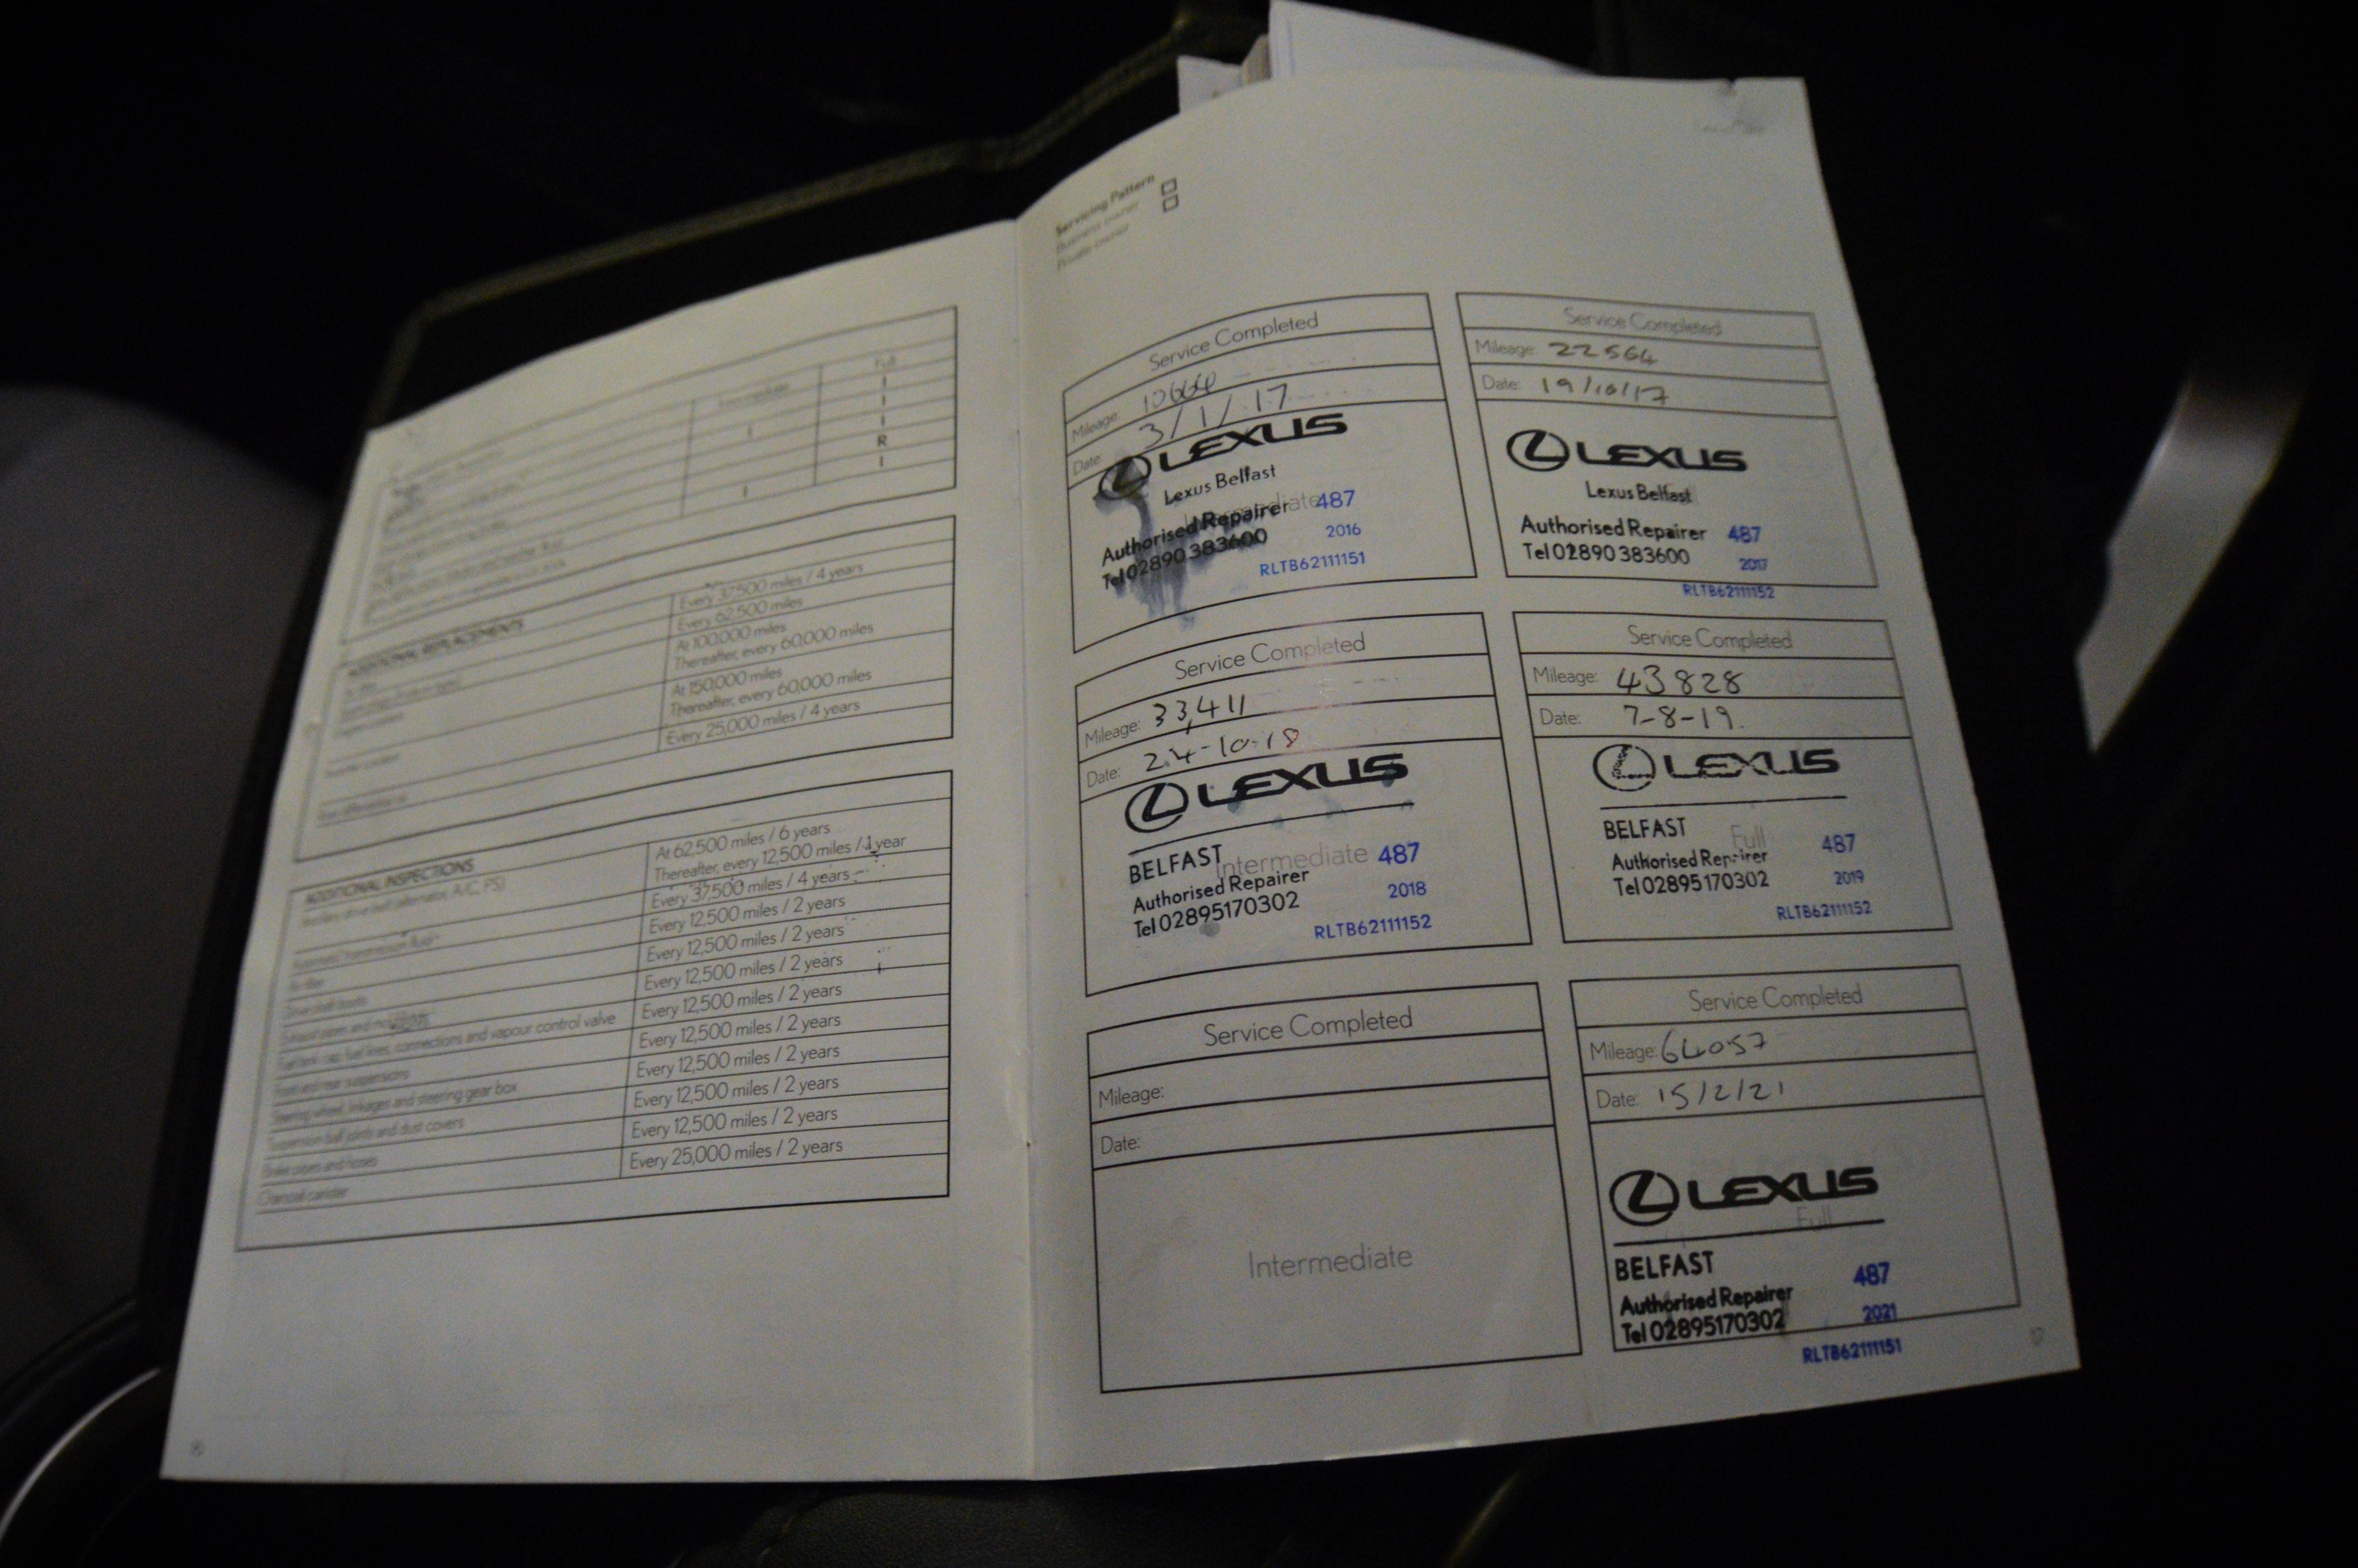 Full
I
I
I
I
R
I
I
ADDITIONAL REPLACEMENTS
Every 37,500 miles / 4 years
Every 62,500 miles
At 100,000 miles
Thereafter, every 60,000 miles
At 150,000 miles
Thereafter, every 60,000 miles
Every 25,000 miles / 4 years
ADDITIONAL INSPECTIONS
At 62,500 miles / 6 years
Thereafter, every 12,500 miles / 1 year
Every 37,500 miles / 4 years
Air filter
Every 12,500 miles / 2 years
Drive shaft boots
Every 12,500 miles / 2 years
Exhaust pipes and mountings
Every 12,500 miles / 2 years
Fuel tank cap, fuel lines, connections and vapour control valve
Every 12,500 miles / 2 years
Front and rear suspensions
Every 12,500 miles / 2 years
Steering wheel, linkages and steering gear box
Every 12,500 miles / 2 years
Suspension ball joints and dust covers
Every 12,500 miles / 2 years
Brake pipes and hoses
Every 12,500 miles / 2 years
Charcoal canister
Every 25,000 miles / 2 years
Servicing Pattern
Business owner
Private owner
Service Completed
Mileage:
Date: 3/1/17
LEXUS
Lexus Belfast
Intermediate
Authorised Repairer 487
Tel 02890 383600 2016
RLTB62111151
Service Completed
Mileage: 22564
Date: 19/10/17
LEXUS
Lexus Belfast
Authorised Repairer 487
Tel 02890 383600 2017
RLTB62111152
Service Completed
Mileage: 33,411
Date: 24-10-18
LEXUS
BELFAST Intermediate 487
Authorised Repairer 2018
Tel 02895170302
RLTB62111152
Service Completed
Mileage: 43828
Date: 7-8-19.
LEXUS
BELFAST Full 487
Authorised Repairer
Tel 02895170302 2019
RLTB62111152
Service Completed
Mileage:
Date:
Intermediate
Service Completed
Mileage: 64057
Date: 15/2/21
LEXUS
Full
BELFAST 487
Authorised Repairer
Tel 02895170302 2021
RLTB62111151
17